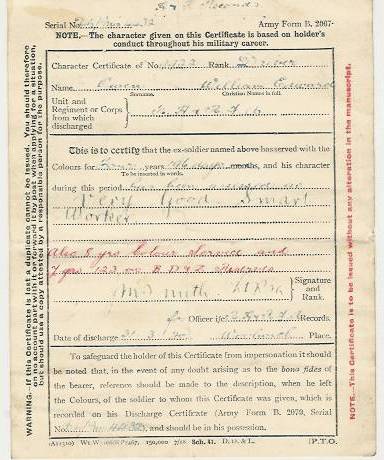 R. H. Records
Serial No. Army Form B. 2067.
NOTE.—The character given on this Certificate is based on holder's
conduct throughout his military career.
Character Certificate of No. Rank Driver
Name Owen William Edward
Surname. Christian Names in full.
Unit and
Regiment or Corps
from which
discharged
This is to certify that the ex-soldier named above has served with the
Colours for years days months, and his character
To be inserted in words.
during this period has been
Very Good Smart
Worker
Also 8 yrs Colour Service and
7 yrs 123 Reserve
Signature
and
Rank.
for Officer i/c Records.
Date of discharge Woolwich Place.
To safeguard the holder of this Certificate from impersonation it should
be noted that, in the event of any doubt arising as to the bona fides of
the bearer, reference should be made to the description, when he left
the Colours, of the soldier to whom this Certificate was given, which is
recorded on his Discharge Certificate (Army Form B. 2079, Serial
No. and should be in his possession.
Wt.W. 150,000 7/18 Sch. 41. D. D. & L. [P.T.O.
WARNING.—If this Certificate is lost a duplicate cannot be issued. You should therefore
on no account part with it or forward it by post when applying for a situation,
but should use a copy attested by a responsible person for the purpose.
NOTE.—This Certificate is to be issued without any alteration in the manuscript.